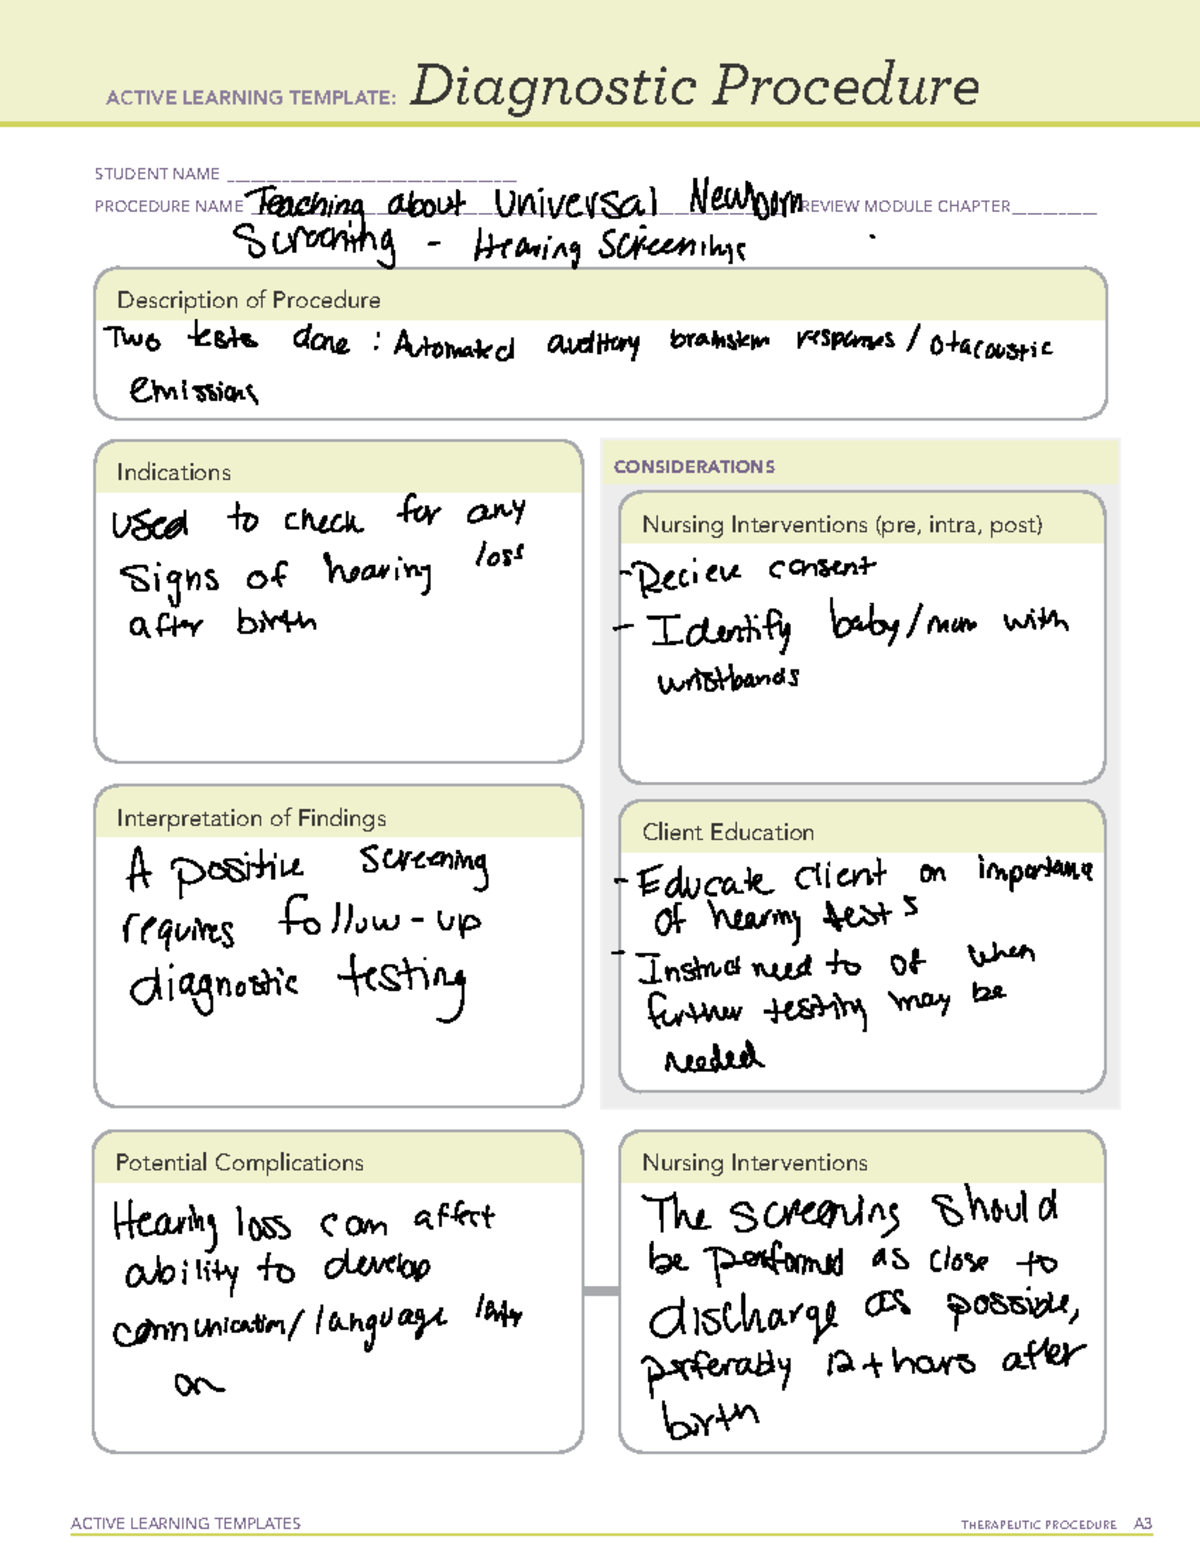 ACTIVE LEARNING TEMPLATE: Diagnostic Procedure
STUDENT NAME
PROCEDURE NAME Teaching about Universal Newborn REVIEW MODULE CHAPTER
Screening - Hearing Screenings
Description of Procedure
Two tests done : Automated auditory brainstem responses / otacoustic
emissions
Indications
Used to check for any
signs of hearing loss
after birth
CONSIDERATIONS
Nursing Interventions (pre, intra, post)
- Recieve consent
- Identify baby/mom with
wristbands
Interpretation of Findings
A positive screening
requires follow-up
diagnostic testing
Client Education
- Educate client on importance
of hearing tests
- Instruct need to of when
further testing may be
needed
Potential Complications
Hearing loss can affect
ability to develop
communication/language later
on
Nursing Interventions
The screening should
be performed as close to
discharge as possible,
perferably 12+ hours after
birth
ACTIVE LEARNING TEMPLATES
THERAPEUTIC PROCEDURE A3